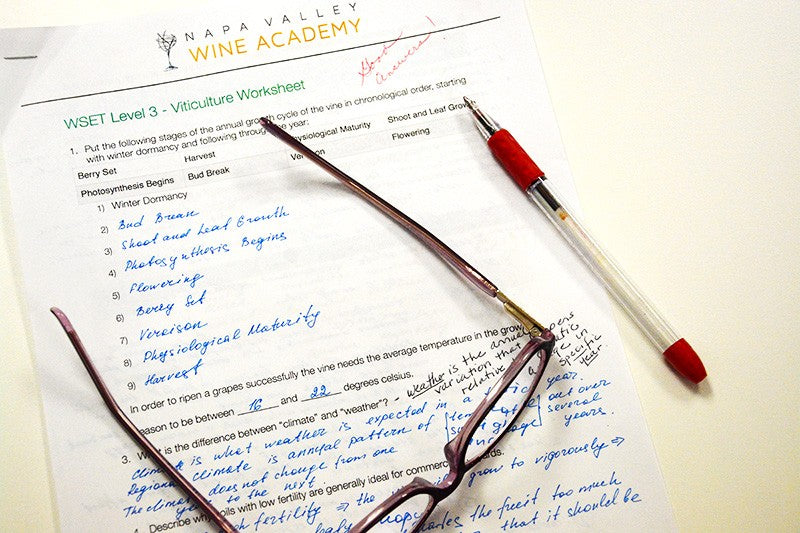 NAPA VALLEY
WINE ACADEMY
Good
answers!
WSET Level 3 - Viticulture Worksheet
1. Put the following stages of the annual growth cycle of the vine in chronological order, starting
with winter dormancy and following through the year:
Berry Set Harvest Physiological Maturity Shoot and Leaf Growth
Photosynthesis Begins Bud Break Veraison Flowering
1) Winter Dormancy
2) Bud Break
3) Shoot and Leaf Growth
4) Photosynthesis Begins
5) Flowering
6) Berry Set
7) Veraison
8) Physiological Maturity
9) Harvest
In order to ripen a grapes successfully the vine needs the average temperature in the growing
season to be between 16 and 22 degrees celsius.
3. What is the difference between "climate" and "weather"? - weather is the annual
variation that happens
relative to
in
specific
year.
Climate is what weather is expected in a year.
Regional climate is annual pattern of temperature out over
The climate does not change from one several
year to the next years.
4. Describe why soils with low fertility are generally ideal for commercial
fertility ⇒ the grow to vigorously ⇒
the fruit too much
that it should be